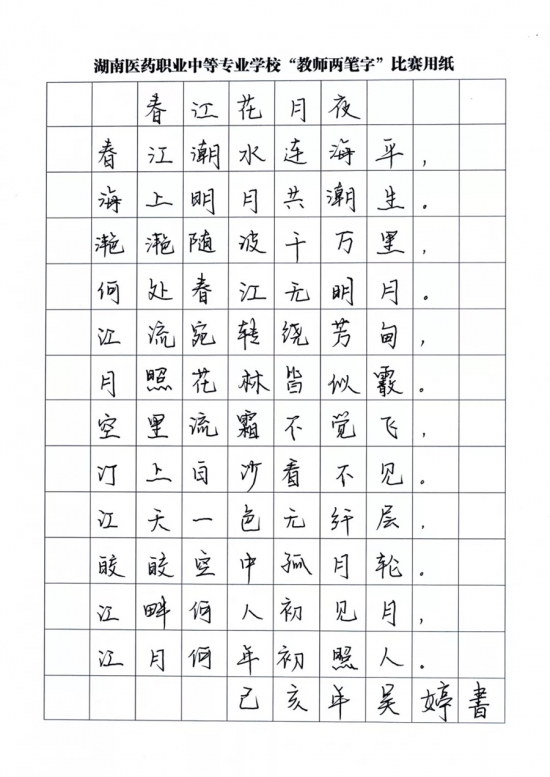 湖南医药职业中等专业学校“教师两笔字”比赛用纸
春江花月夜
春江潮水连海平，
海上明月共潮生。
滟滟随波千万里，
何处春江无明月。
江流宛转绕芳甸，
月照花林皆似霰。
空里流霜不觉飞，
汀上白沙看不见。
江天一色无纤层，
皎皎空中孤月轮。
江畔何人初见月，
江月何年初照人。
己亥年吴婷书